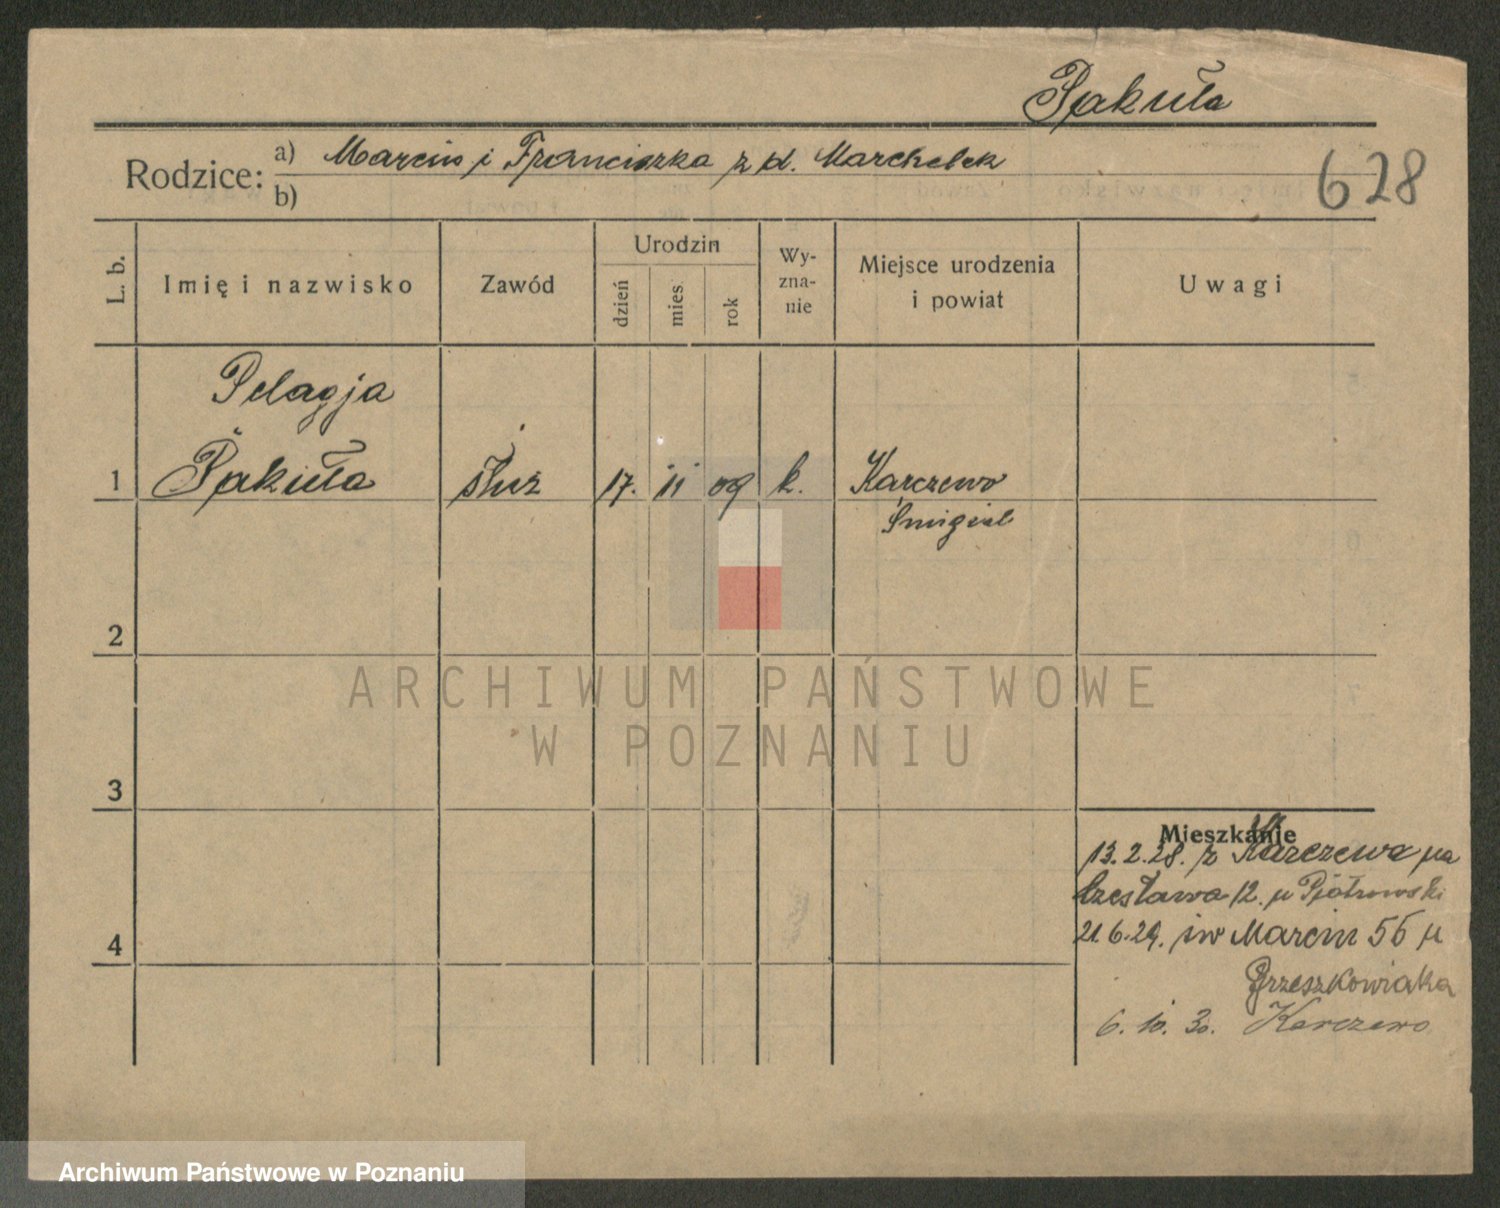 Pakuła
Rodzice:
a) Marcin i Franciszka z d. Marchelek
b)
628
L. b.
Imię i nazwisko
Zawód
Urodzin
dzień
mies.
rok
Wy-
zna-
nie
Miejsce urodzenia
i powiat
Uwagi
Pelagja
1 Pakuła służ 17. 11 09 k. Karczewo
Śmigiel
2
ARCHIWUM PAŃSTWOWE
W POZNANIU
3
Mieszkanie
13.2.28. z Karczewa na
Czesława 12. u Piotrowski
21.6.29. św Marcin 56 u
4
Brzeszkowiaka
6. 10. 30. Karczewo
Archiwum Państwowe w Poznaniu